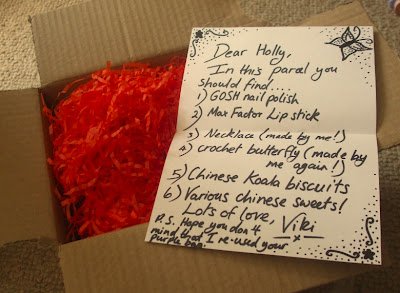 Dear Holly,
In this parcel you
should find....
1) GOSH nail polish
2) Max Factor Lipstick
3) Necklace (made by me!)
4) crochet butterfly (made by
me again!)
5) Chinese Koala biscuits
6) Various chinese sweets!
Lots of love, Viki
x
P.S. Hope you don't
mind that I re-used your
purple